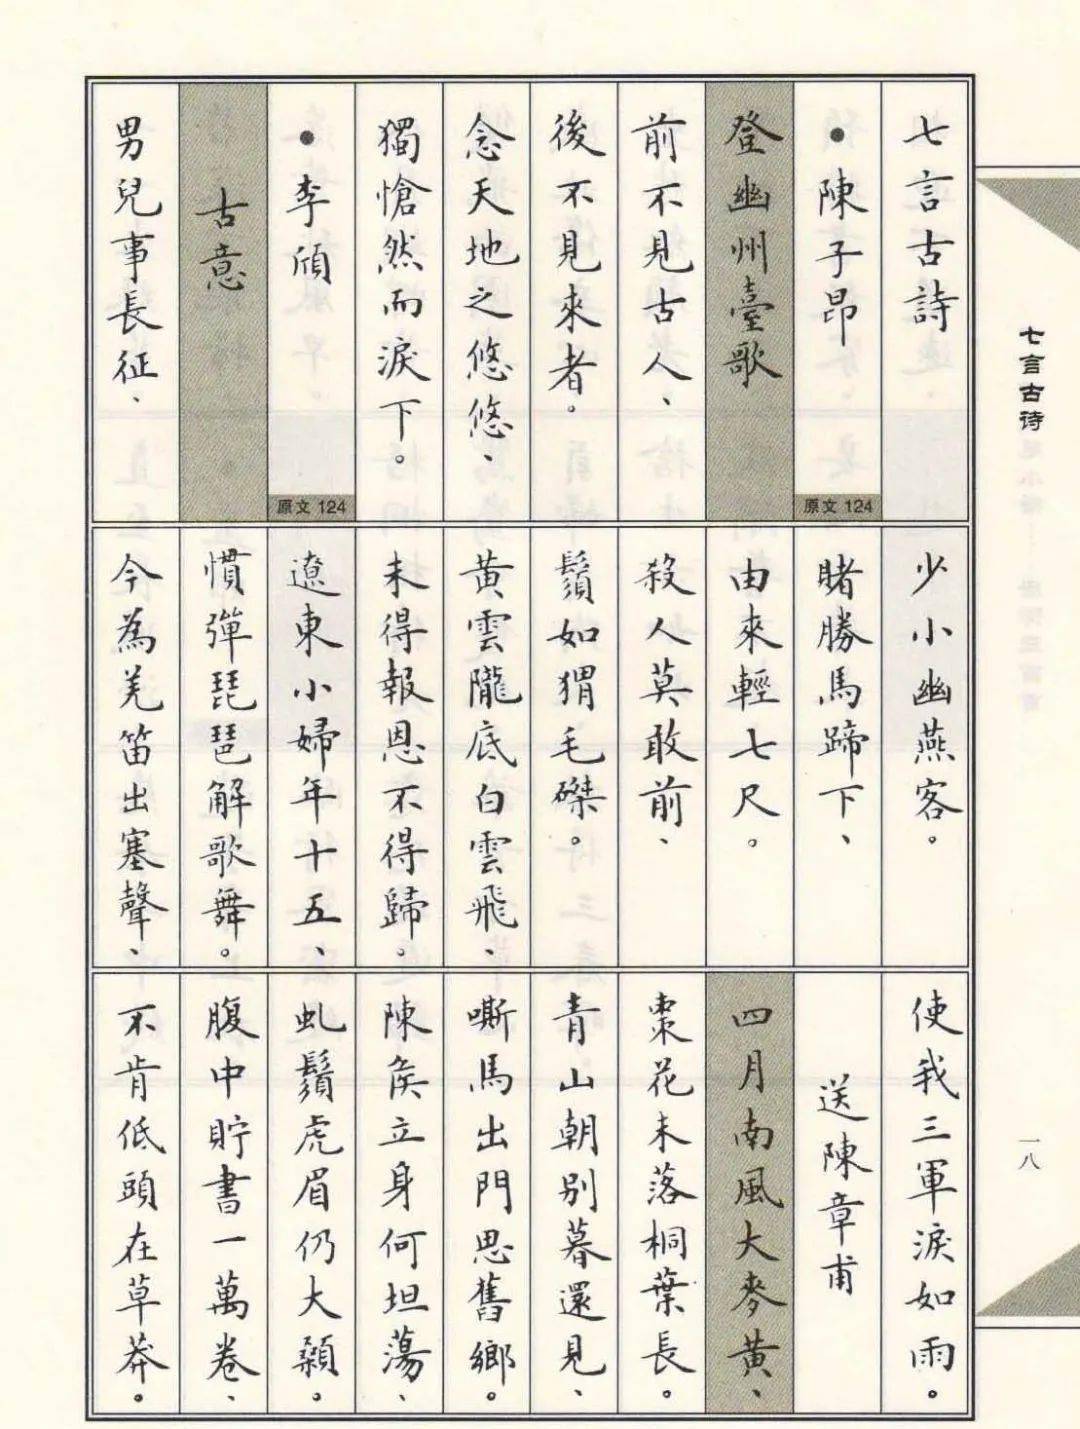 七言古詩
●陳子昂
原文 124
登幽州臺歌
前不見古人、
後不見來者。
念天地之悠悠、
獨愴然而淚下。
●李頎
原文 124
古意
男兒事長征、
少小幽燕客。
賭勝馬蹄下、
由來輕七尺。
殺人莫敢前、
鬚如猬毛磔。
黃雲隴底白雲飛、
未得報恩不得歸。
遼東小婦年十五、
慣彈琵琶解歌舞。
今為羌笛出塞聲、
使我三軍淚如雨。
送陳章甫
四月南風大麥黃、
棗花未落桐葉長。
青山朝別暮還見、
嘶馬出門思舊鄉。
陳侯立身何坦蕩、
虬鬚虎眉仍大顙。
腹中貯書一萬卷、
不肯低頭在草莽。
七言古诗
一八